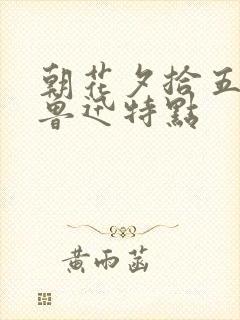 朝花夕拾五
魯迅特點
黃雨菡